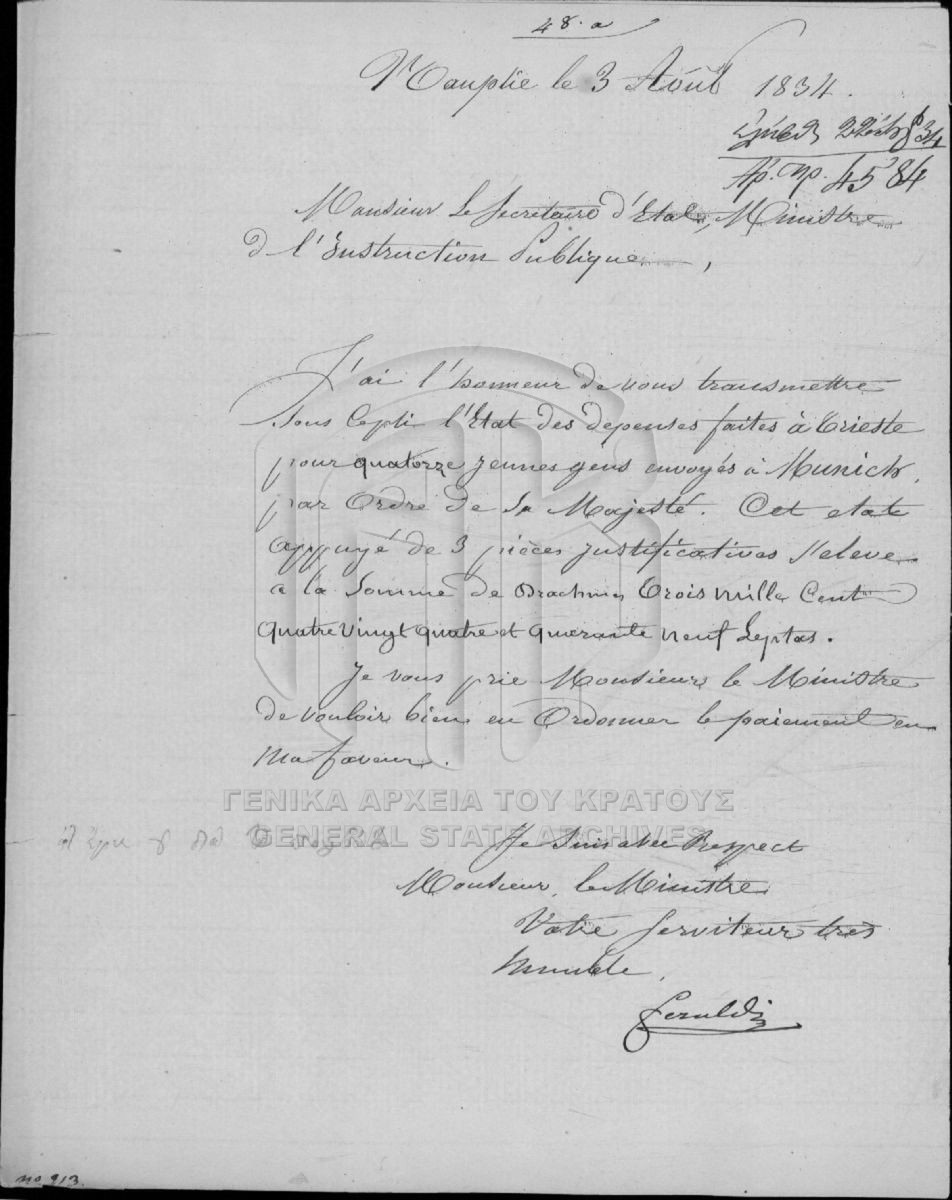 48. a
Nauplie le 3 Août 1834.
22 8 34
Αρ. Πρ. 4584
Monsieur Le Secrétaire d'Etat, Ministre
de l'Instruction Publique,
J'ai l'honneur de vous transmettre
Sous ce pli l'Etat des depenses faites à Trieste
pour quatorze jeunes gens envoyés à Munich,
par Ordre de Sa Majesté. Cet etat
appuyé de 3 pièces justificatives s'eleve
a la Somme de Drachmes Trois mille Cent
quatre vingt quatre et quarante neuf Leptas.
Je vous prie Monsieur le Ministre
de vouloir bien en Ordonner le paiement en
ma faveur.
ΓΕΝΙΚΑ ΑΡΧΕΙΑ ΤΟΥ ΚΡΑΤΟΥΣ
GENERAL STATE ARCHIVES
Je Suis avec Respect
Monsieur le Ministre
Votre Serviteur très
humble,
No 913